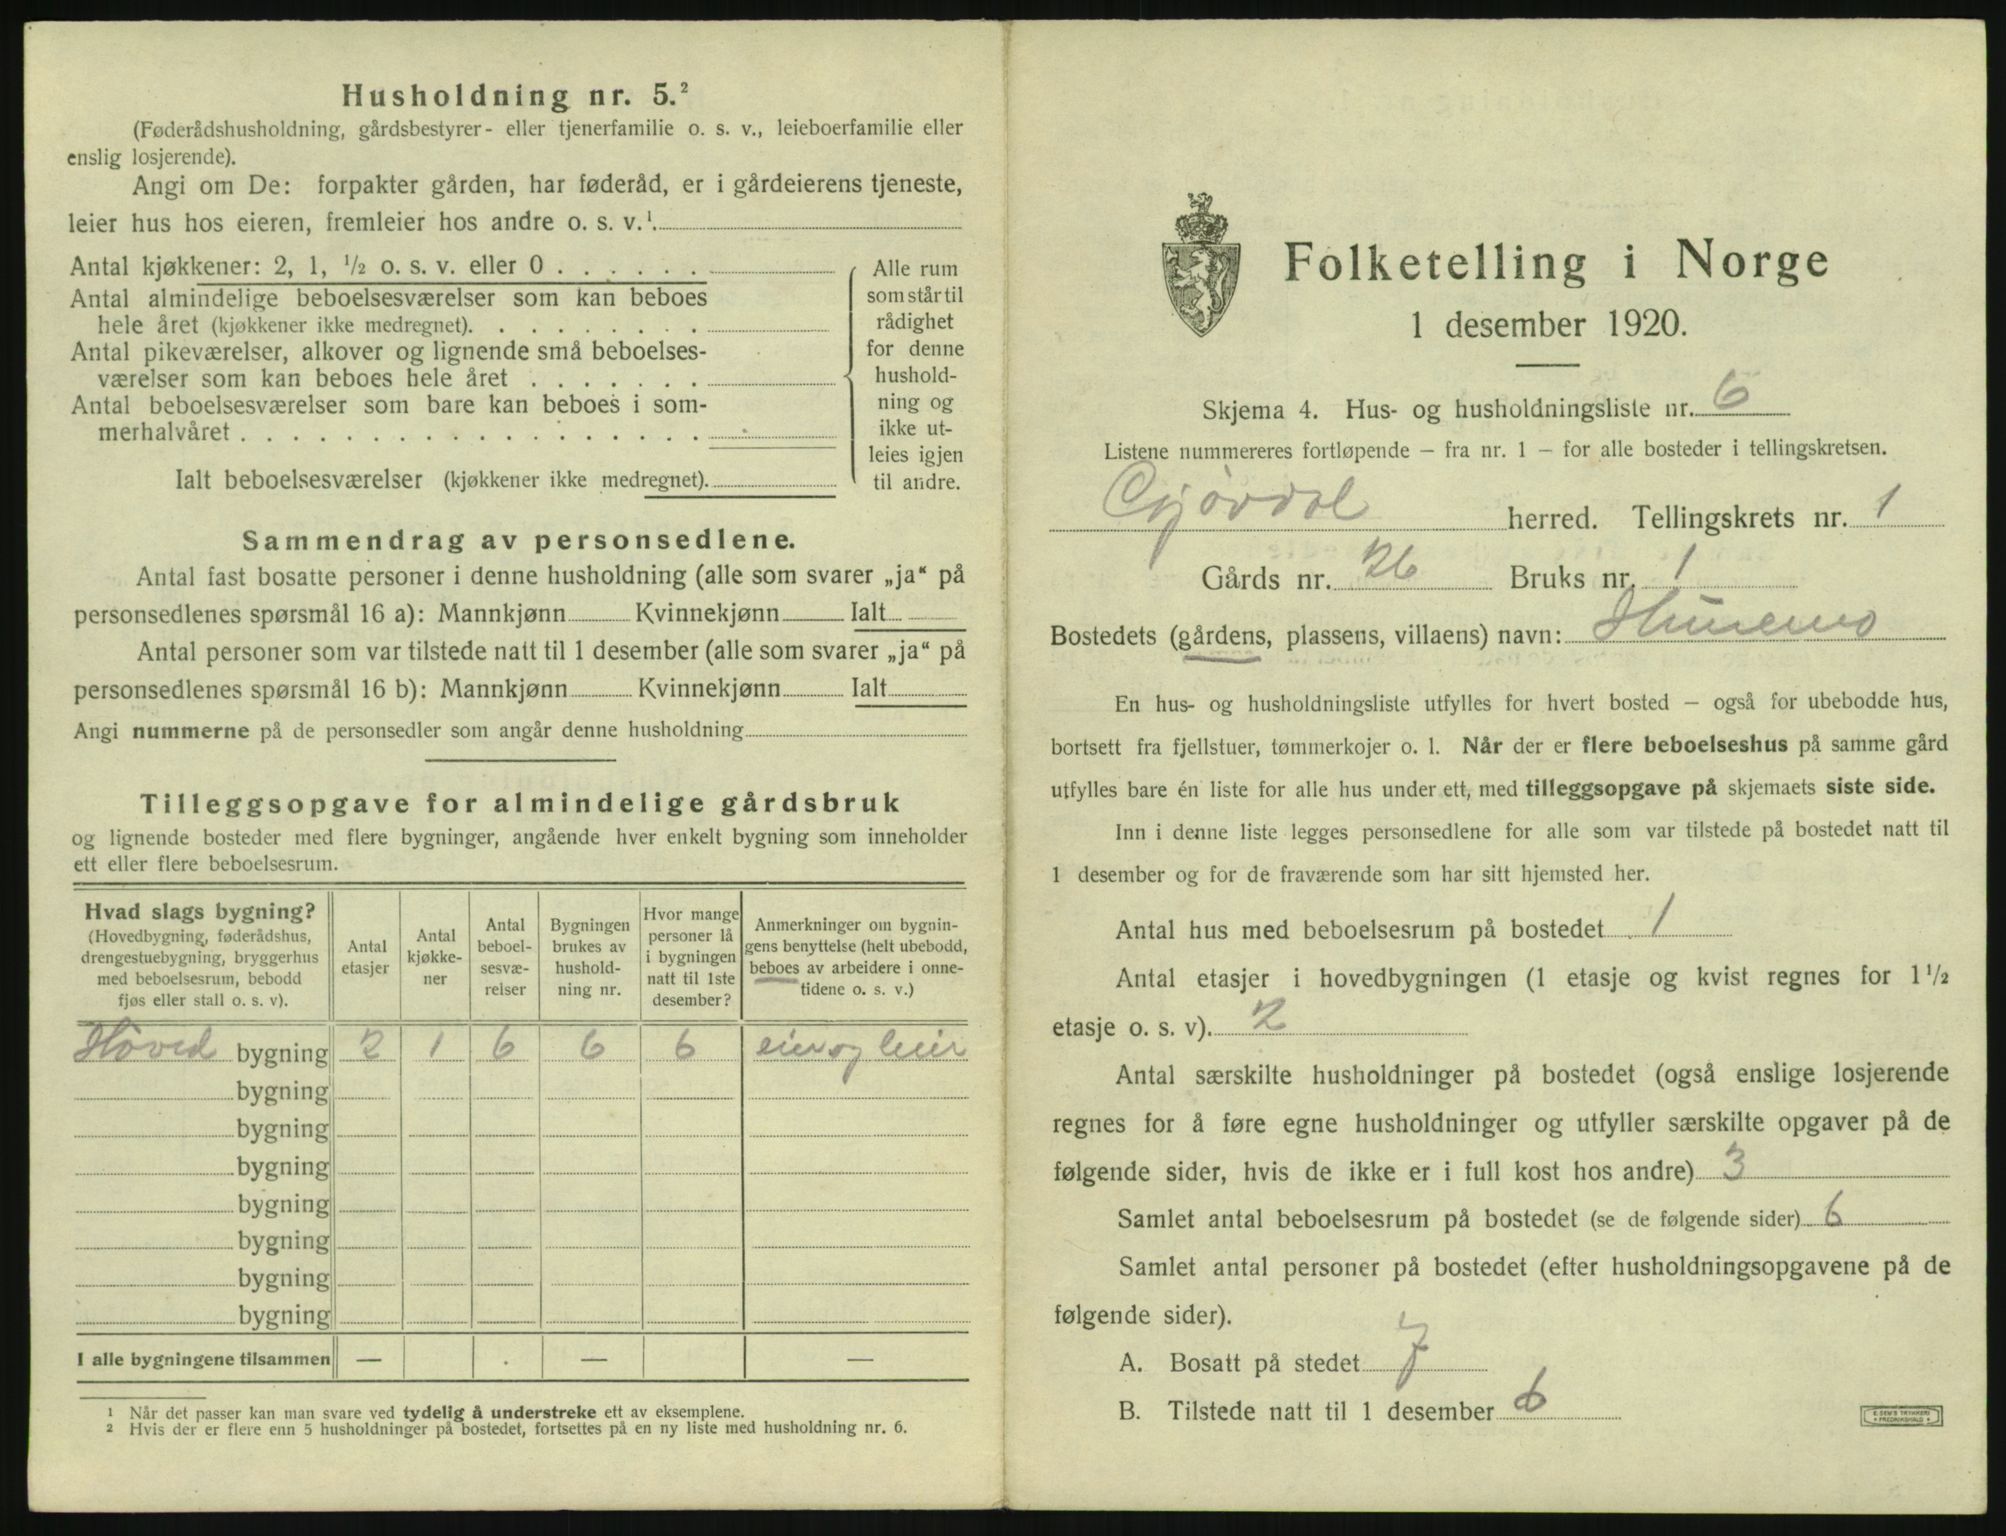 Husholdning nr. 5.²
(Føderådshusholdning, gårdsbestyrer- eller tjenerfamilie o. s. v., leieboerfamilie eller
enslig losjerende).
Angi om De: forpakter gården, har føderåd, er i gårdeierens tjeneste,
leier hus hos eieren, fremleier hos andre o. s. v.¹
Antal kjøkkener: 2, 1, ½ o. s. v. eller 0
Antal almindelige beboelsesværelser som kan beboes
hele året (kjøkkener ikke medregnet).
Antal pikeværelser, alkover og lignende små beboelses-
værelser som kan beboes hele året
Antal beboelsesværelser som bare kan beboes i som-
merhalvåret
Ialt beboelsesværelser (kjøkkener ikke medregnet).
Alle rum
som står til
rådighet
for denne
hushold-
ning og
ikke ut-
leies igjen
til andre.
Sammendrag av personsedlene.
Antal fast bosatte personer i denne husholdning (alle som svarer „ja“ på
personsedlenes spørsmål 16 a): Mannkjønn Kvinnekjønn Ialt
Antal personer som var tilstede natt til 1 desember (alle som svarer „ja“ på
personsedlenes spørsmål 16 b): Mannkjønn Kvinnekjønn Ialt
Angi nummerne på de personsedler som angår denne husholdning
Tilleggsopgave for almindelige gårdsbruk
og lignende bosteder med flere bygninger, angående hver enkelt bygning som inneholder
ett eller flere beboelsesrum.
Hvad slags bygning?
(Hovedbygning, føderådshus,
drengestuebygning, bryggerhus
med beboelsesrum, bebodd
fjøs eller stall o. s. v).
Antal
etasjer
Antal
kjøkke-
ner
Antal
beboel-
sesvæ-
relser
Bygningen
brukes av
hushold-
ning nr.
Hvor mange
personer lå
i bygningen
natt til 1ste
desember?
Anmerkninger om bygnin-
gens benyttelse (helt ubebodd,
beboes av arbeidere i onne-
tidene o. s. v.)
Hoved bygning 2 1 6 6 6 eier og leier
bygning
bygning
bygning
bygning
bygning
bygning
bygning
I alle bygningene tilsammen — — —
¹ Når det passer kan man svare ved tydelig å understreke ett av eksemplene.
² Hvis der er flere enn 5 husholdninger på bostedet, fortsettes på en ny liste med husholdning nr. 6.
Folketelling i Norge
1 desember 1920.
Skjema 4. Hus- og husholdningsliste nr. 6
Listene nummereres fortløpende – fra nr. 1 – for alle bosteder i tellingskretsen.
Gjøvdal herred. Tellingskrets nr. 1
Gårds nr. 26 Bruks nr. 1
Bostedets (gårdens, plassens, villaens) navn:
En hus- og husholdningsliste utfylles for hvert bosted – også for ubebodde hus,
bortsett fra fjellstuer, tømmerkojer o. l. Når der er flere beboelseshus på samme gård
utfylles bare én liste for alle hus under ett, med tilleggsopgave på skjemaets siste side.
Inn i denne liste legges personsedlene for alle som var tilstede på bostedet natt til
1 desember og for de fraværende som har sitt hjemsted her.
Antal hus med beboelsesrum på bostedet 1
Antal etasjer i hovedbygningen (1 etasje og kvist regnes for 1½
etasje o. s. v). 2
Antal særskilte husholdninger på bostedet (også enslige losjerende
regnes for å føre egne husholdninger og utfyller særskilte opgaver på de
følgende sider, hvis de ikke er i full kost hos andre) 3
Samlet antal beboelsesrum på bostedet (se de følgende sider) 6
Samlet antal personer på bostedet (efter husholdningsopgavene på de
følgende sider).
A. Bosatt på stedet 7
B. Tilstede natt til 1 desember 6
E. SEM'S TRYKKERI
FREDRIKSHALD